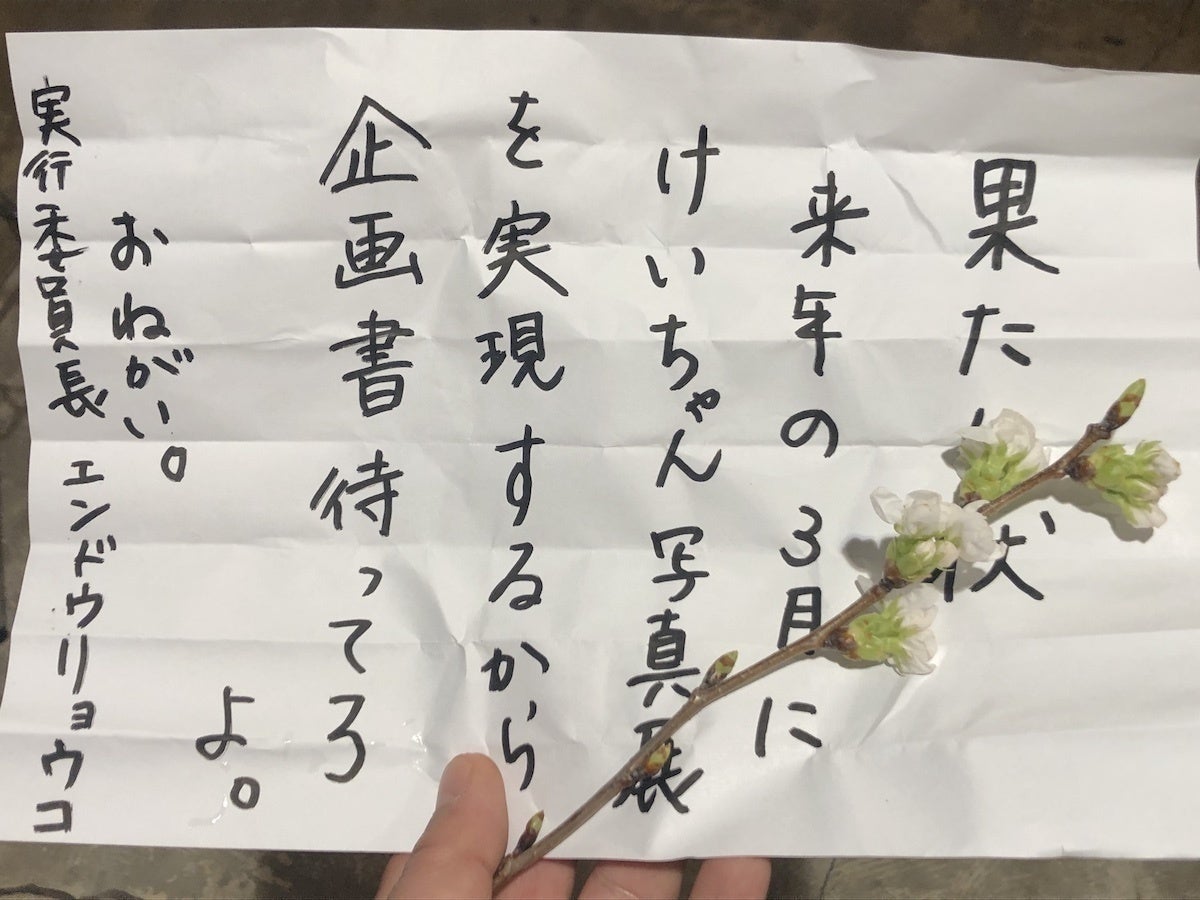 果た状
来年の3月に
けいちゃん写真展
を実現するから
企画書待ってろ
よ。
おねがい。
実行委員長 エンドウリョウコ